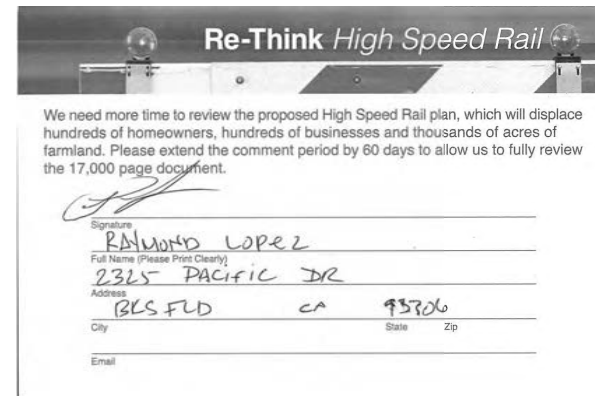 Re-Think High Speed Rail
We need more time to review the proposed High Speed Rail plan, which will displace
hundreds of homeowners, hundreds of businesses and thousands of acres of
farmland. Please extend the comment period by 60 days to allow us to fully review
the 17,000 page document.
Signature
RAYMOND LOPEZ
Full Name (Please Print Clearly)
2325 PACIFIC DR
Address
BKSFLD CA 93306
City State Zip
Email